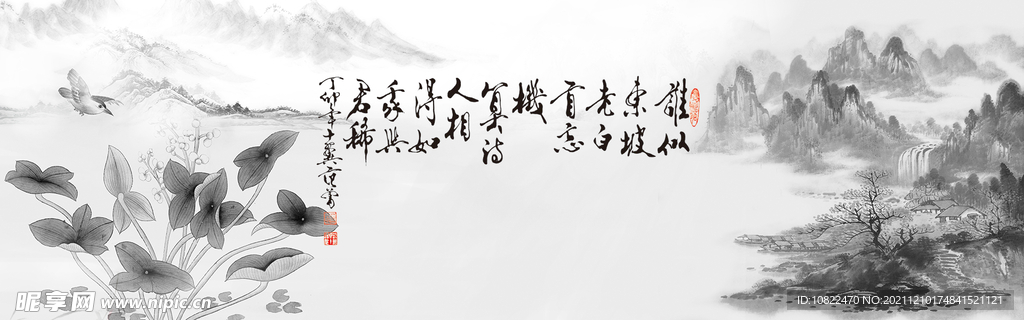 誰似
東坡
老白
首忘
機
算詩
人相
得如
我與
君稀
丁卯年十
昵享网 www.nipic.cn
ID:10822470 NO:20211210174841521121